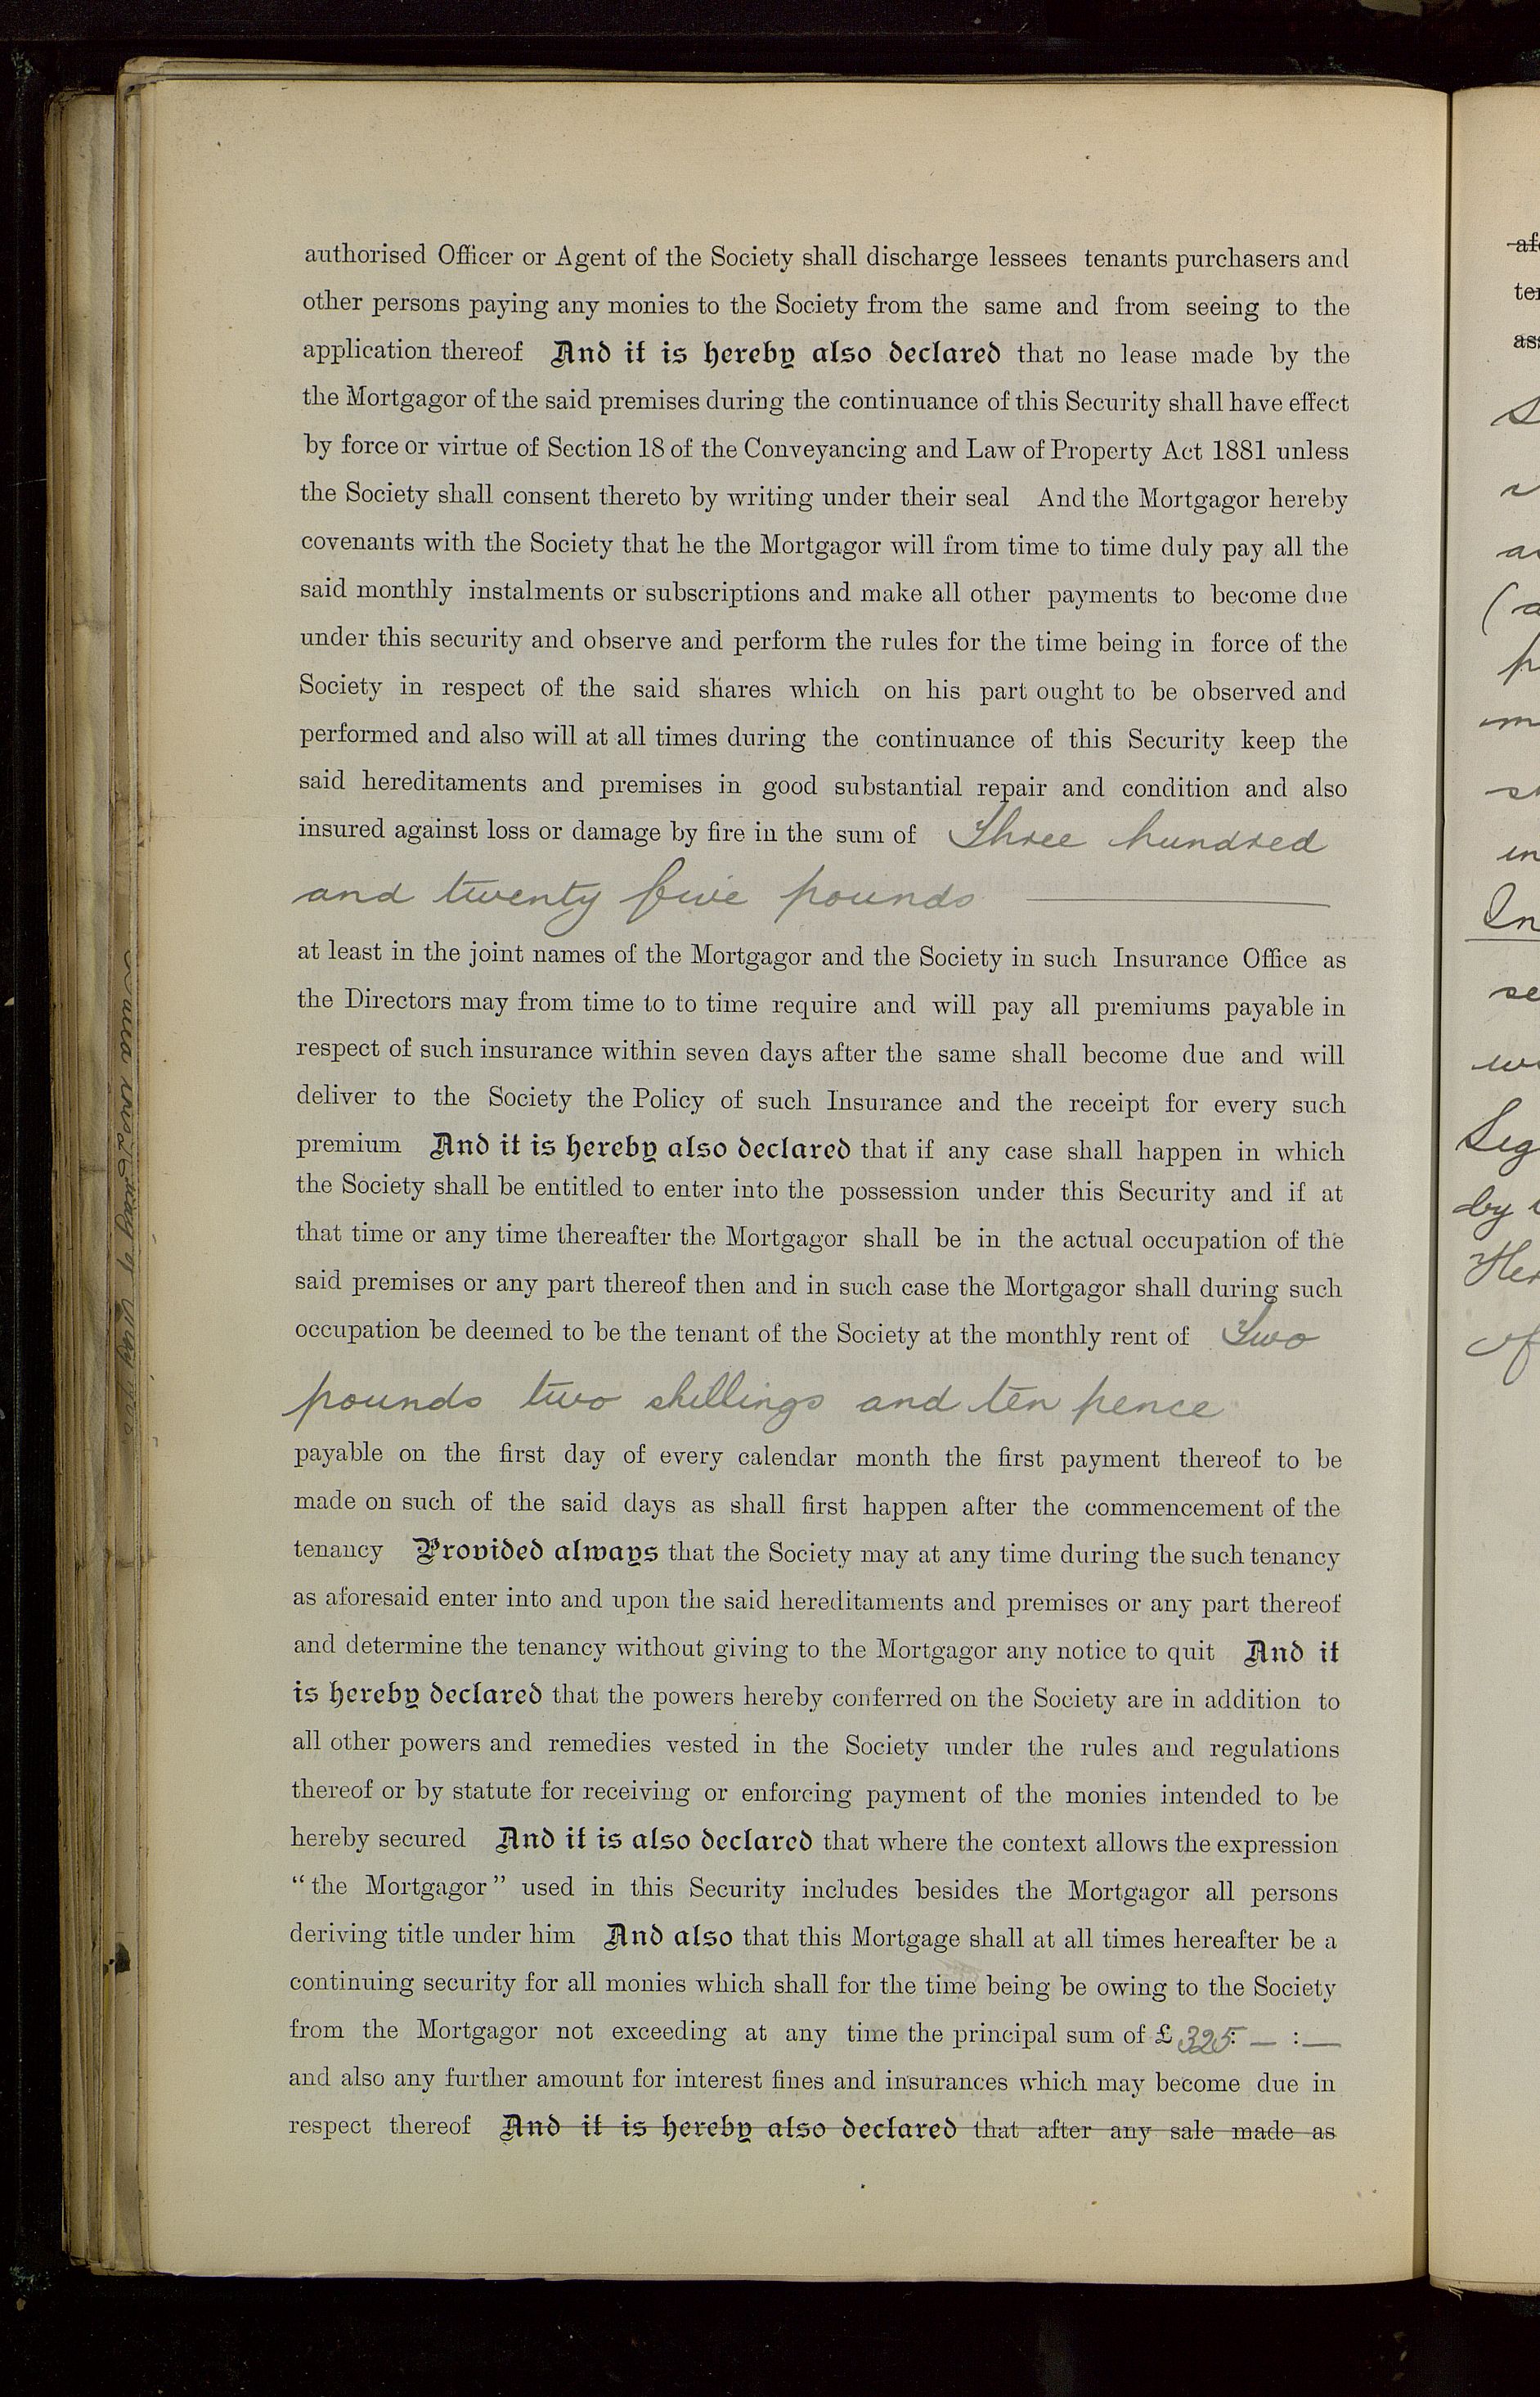 authorised Officer or Agent of the Society shall discharge lessees tenants purchasers and
other persons paying any monies to the Society from the same and from seeing to the
application thereof And it is hereby also declared that no lease made by the
the Mortgagor of the said premises during the continuance of this Security shall have effect
by force or virtue of Section 18 of the Conveyancing and Law of Property Act 1881 unless
the Society shall consent thereto by writing under their seal And the Mortgagor hereby
covenants with the Society that he the Mortgagor will from time to time duly pay all the
said monthly instalments or subscriptions and make all other payments to become due
under this security and observe and perform the rules for the time being in force of the
Society in respect of the said shares which on his part ought to be observed and
performed and also will at all times during the continuance of this Security keep the
said hereditaments and premises in good substantial repair and condition and also
insured against loss or damage by fire in the sum of Three hundred
and twenty five pounds
at least in the joint names of the Mortgagor and the Society in such Insurance Office as
the Directors may from time to to time require and will pay all premiums payable in
respect of such insurance within seven days after the same shall become due and will
deliver to the Society the Policy of such Insurance and the receipt for every such
premium And it is hereby also declared that if any case shall happen in which
the Society shall be entitled to enter into the possession under this Security and if at
that time or any time thereafter the Mortgagor shall be in the actual occupation of the
said premises or any part thereof then and in such case the Mortgagor shall during such
occupation be deemed to be the tenant of the Society at the monthly rent of Two
pounds two shillings and ten pence
payable on the first day of every calendar month the first payment thereof to be
made on such of the said days as shall first happen after the commencement of the
tenancy Provided always that the Society may at any time during the such tenancy
as aforesaid enter into and upon the said hereditaments and premises or any part thereof
and determine the tenancy without giving to the Mortgagor any notice to quit And it
is hereby declared that the powers hereby conferred on the Society are in addition to
all other powers and remedies vested in the Society under the rules and regulations
thereof or by statute for receiving or enforcing payment of the monies intended to be
hereby secured And it is also declared that where the context allows the expression
"the Mortgagor" used in this Security includes besides the Mortgagor all persons
deriving title under him And also that this Mortgage shall at all times hereafter be a
continuing security for all monies which shall for the time being be owing to the Society
from the Mortgagor not exceeding at any time the principal sum of £325: — : —
and also any further amount for interest fines and insurances which may become due in
respect thereof And it is hereby also declared that after any sale made as